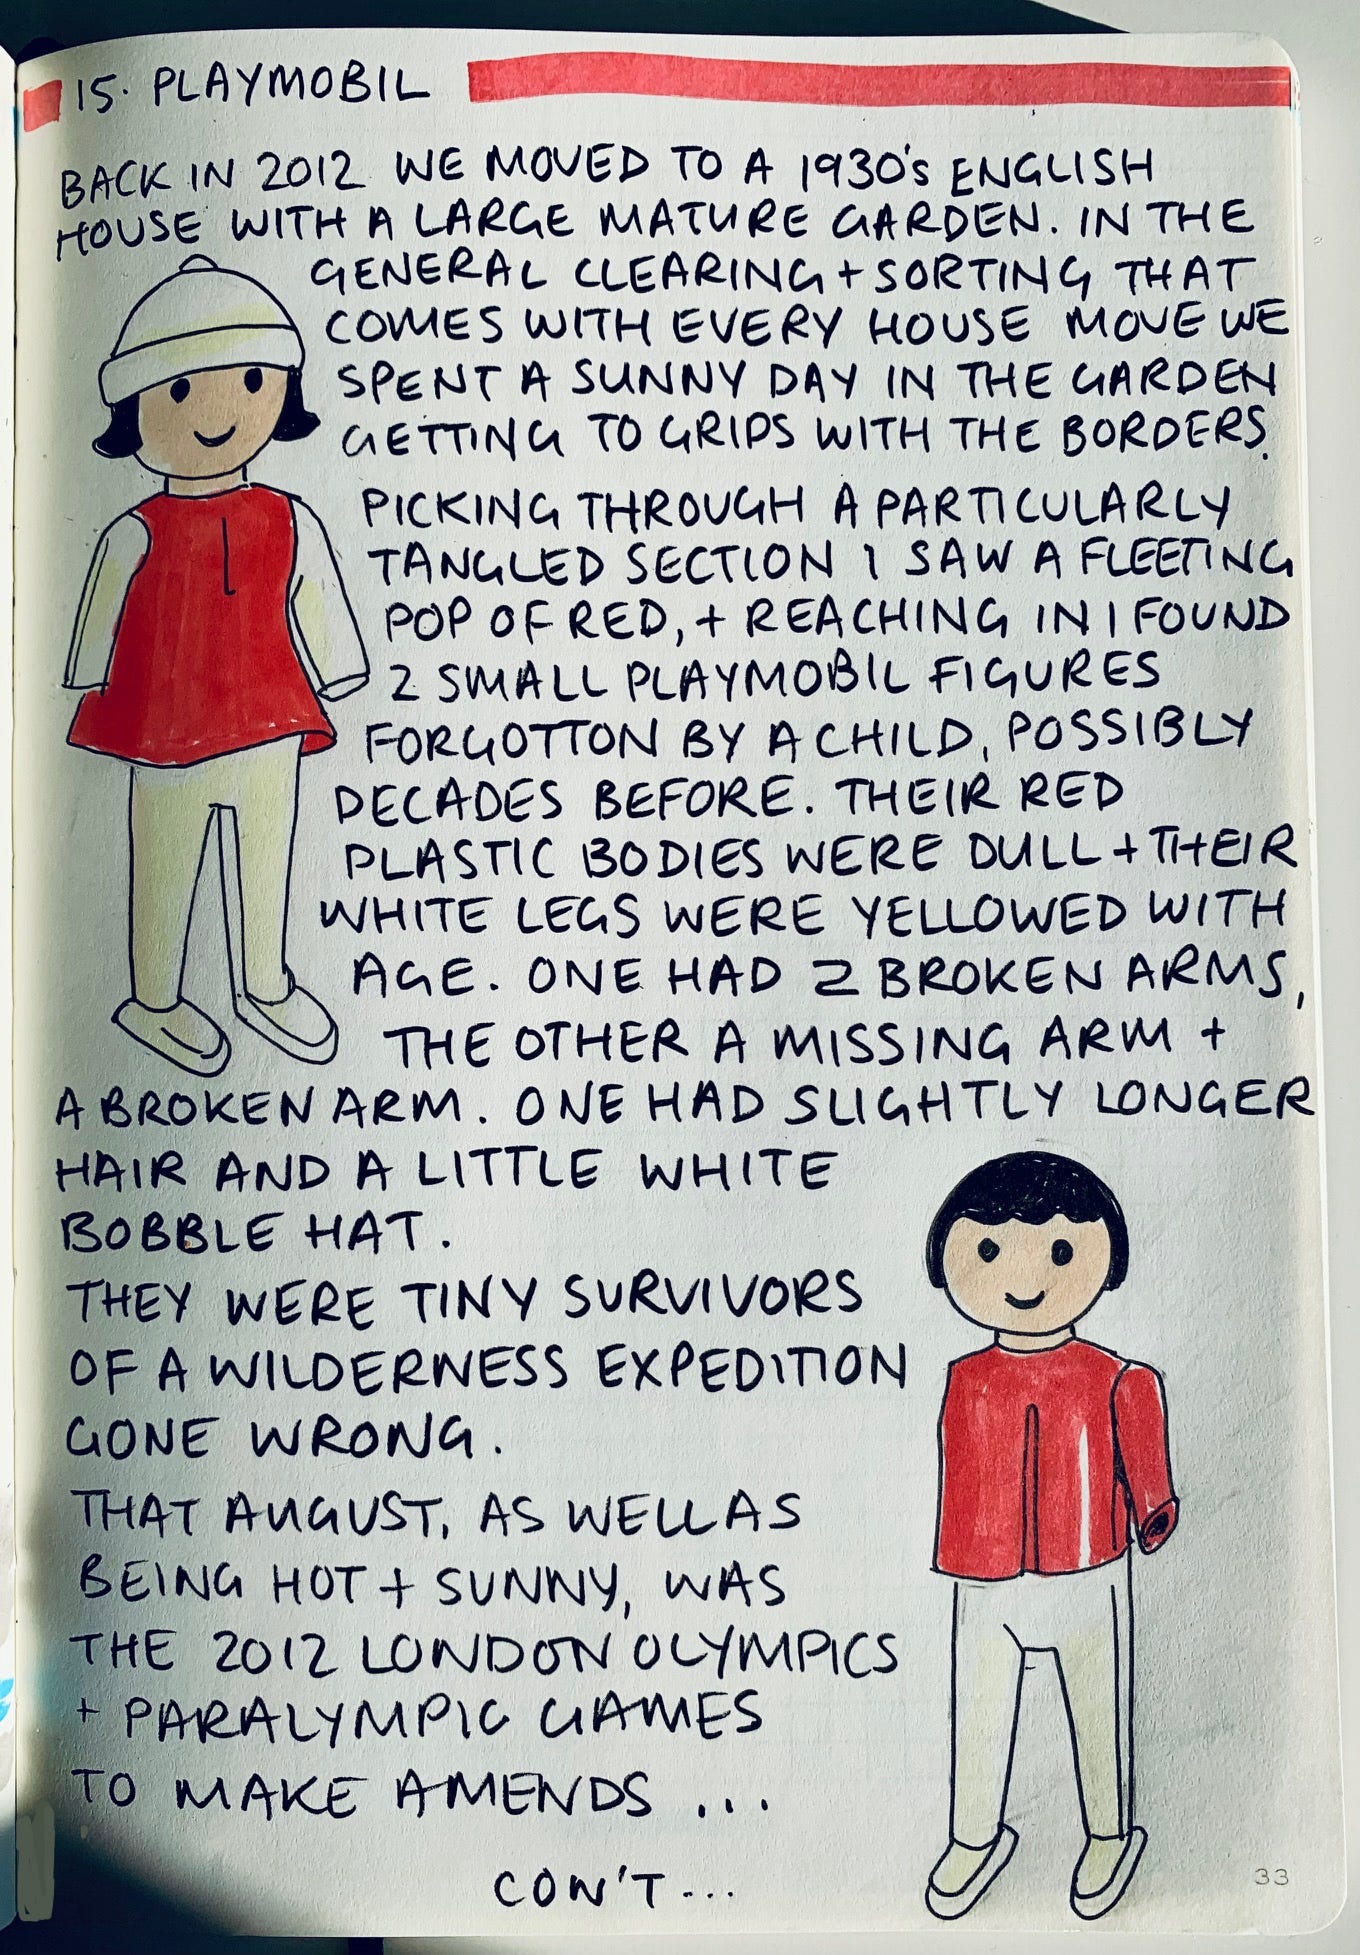 15. PLAYMOBIL
BACK IN 2012 WE MOVED TO A 1930's ENGLISH
HOUSE WITH A LARGE MATURE GARDEN. IN THE
GENERAL CLEARING + SORTING THAT
COMES WITH EVERY HOUSE MOVE WE
SPENT A SUNNY DAY IN THE GARDEN
GETTING TO GRIPS WITH THE BORDERS.
PICKING THROUGH A PARTICULARLY
TANGLED SECTION I SAW A FLEETING
POP OF RED, + REACHING IN I FOUND
2 SMALL PLAYMOBIL FIGURES
FORGOTTON BY A CHILD, POSSIBLY
DECADES BEFORE. THEIR RED
PLASTIC BODIES WERE DULL + THEIR
WHITE LEGS WERE YELLOWED WITH
AGE. ONE HAD 2 BROKEN ARMS,
THE OTHER A MISSING ARM +
A BROKEN ARM. ONE HAD SLIGHTLY LONGER
HAIR AND A LITTLE WHITE
BOBBLE HAT.
THEY WERE TINY SURVIVORS
OF A WILDERNESS EXPEDITION
GONE WRONG.
THAT AUGUST, AS WELL AS
BEING HOT + SUNNY, WAS
THE 2012 LONDON OLYMPICS
+ PARALYMPIC GAMES
TO MAKE AMENDS ...
CON'T ...
33